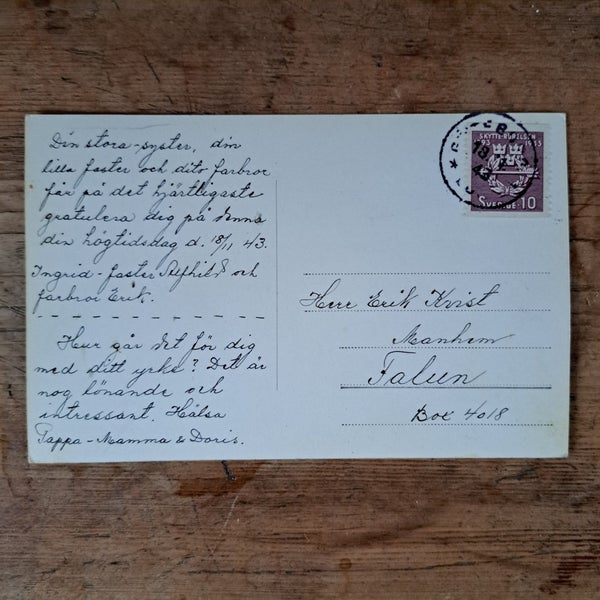 Din stora-syster, din
lilla faster och dito farbror
får på det hjärtligaste
gratulera dig på denna
din högtidsdag d. 18/11 43.
Ingrid - faster Alfhild och
farbror Erik.
Hur går det för dig
med ditt yrke? Det är
nog lönande och
intressant. Hälsa
Pappa-Mamma & Doris.
SKYTTERÖRELSEN
1893 1943
SVERIGE 10
Herr Erik Kvist
Manhem
Falun
Box 4018